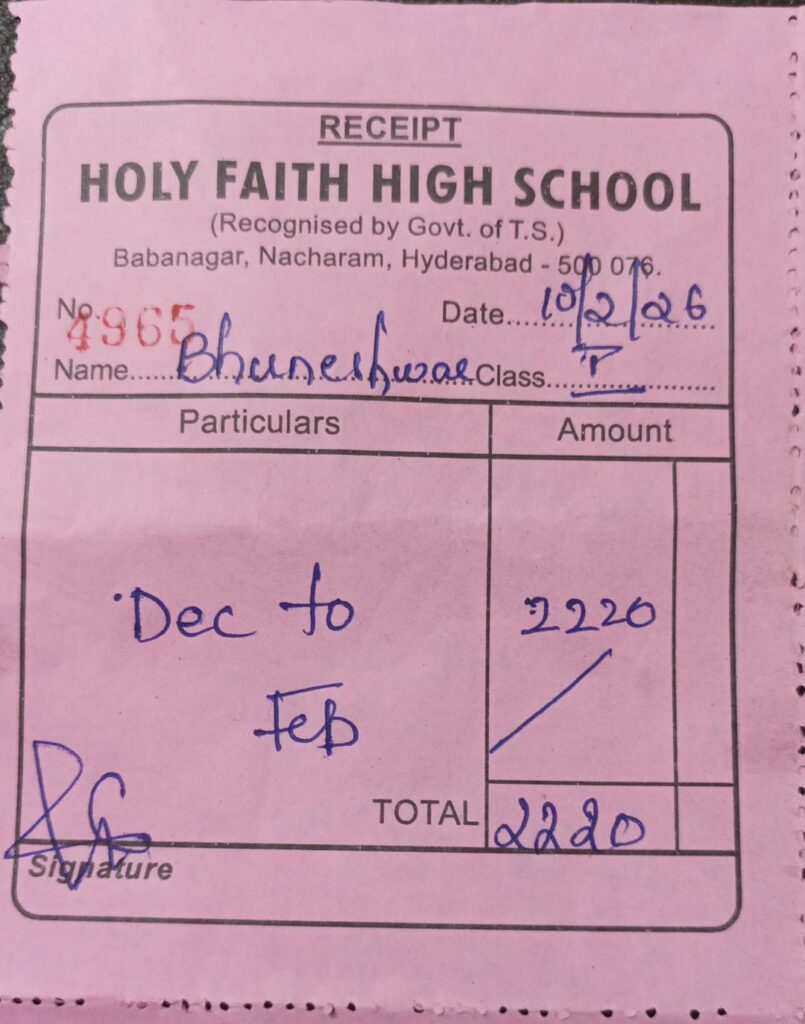 RECEIPT
HOLY FAITH HIGH SCHOOL
(Recognised by Govt. of T.S.)
Babanagar, Nacharam, Hyderabad - 500 076.
No. 4965 Date 10/2/26
Name Bhuneshwar Class I
Particulars Amount
Dec to 2220
Feb
TOTAL 2220
Signature